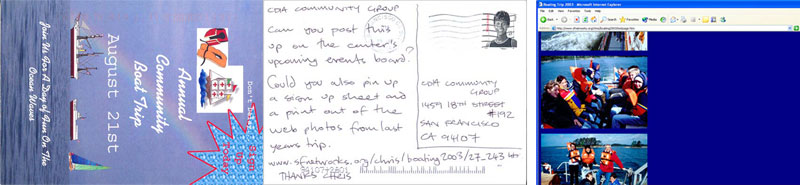 Join Us For A Day of Fun On The
Ocean Waves
August 21st
Annual
Community
Boat Trip
Don't Delay
Sign
Up
Today
CDA COMMUNITY GROUP
Can you post this
up on the center's
upcoming events board?
Could you also pin up
a sign up sheet and
a print out of the
web photos from last
years trip.
www.sfnetworks.org/chris/boating2003/27_243.htm
THANKS CHRIS
94107+2801
CDA COMMUNITY
GROUP
1459 18TH STREET
#192
SAN FRANCISCO
CA 94107
Boating Trip 2003 - Microsoft Internet Explorer
File Edit View Favorites Tools Help
Back
Search
Favorites
Media